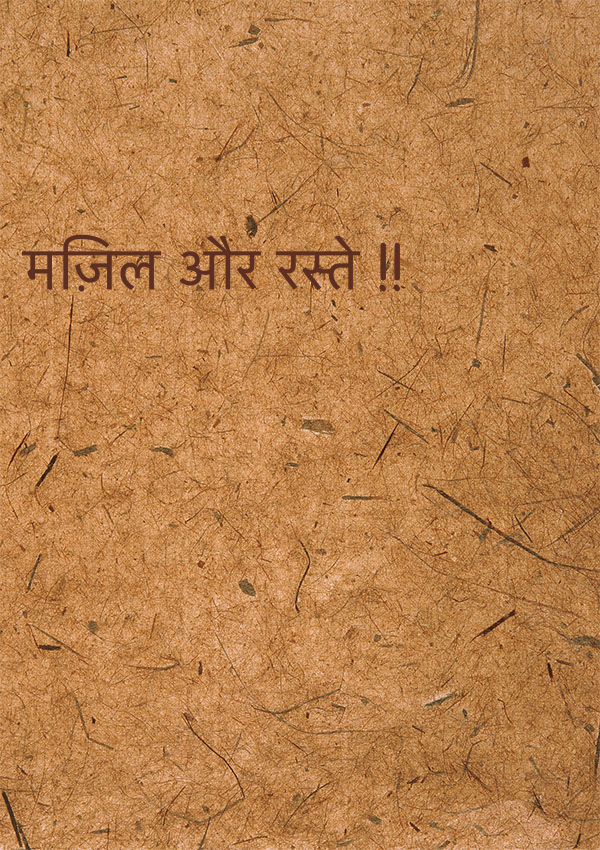 मज़िल और रस्ते !!